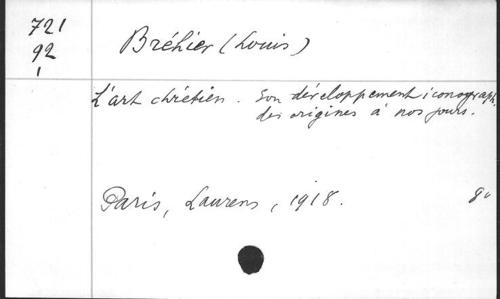 721
92
1
Bréhier (Louis)
L'art chrétien. Son développement iconograph.
des origines à nos jours.
Paris, Laurens, 1918. 8°